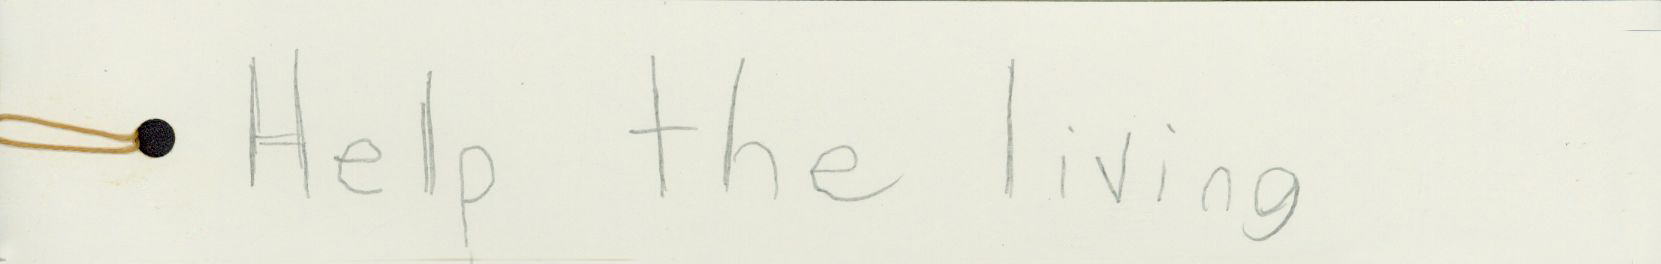 Help the living